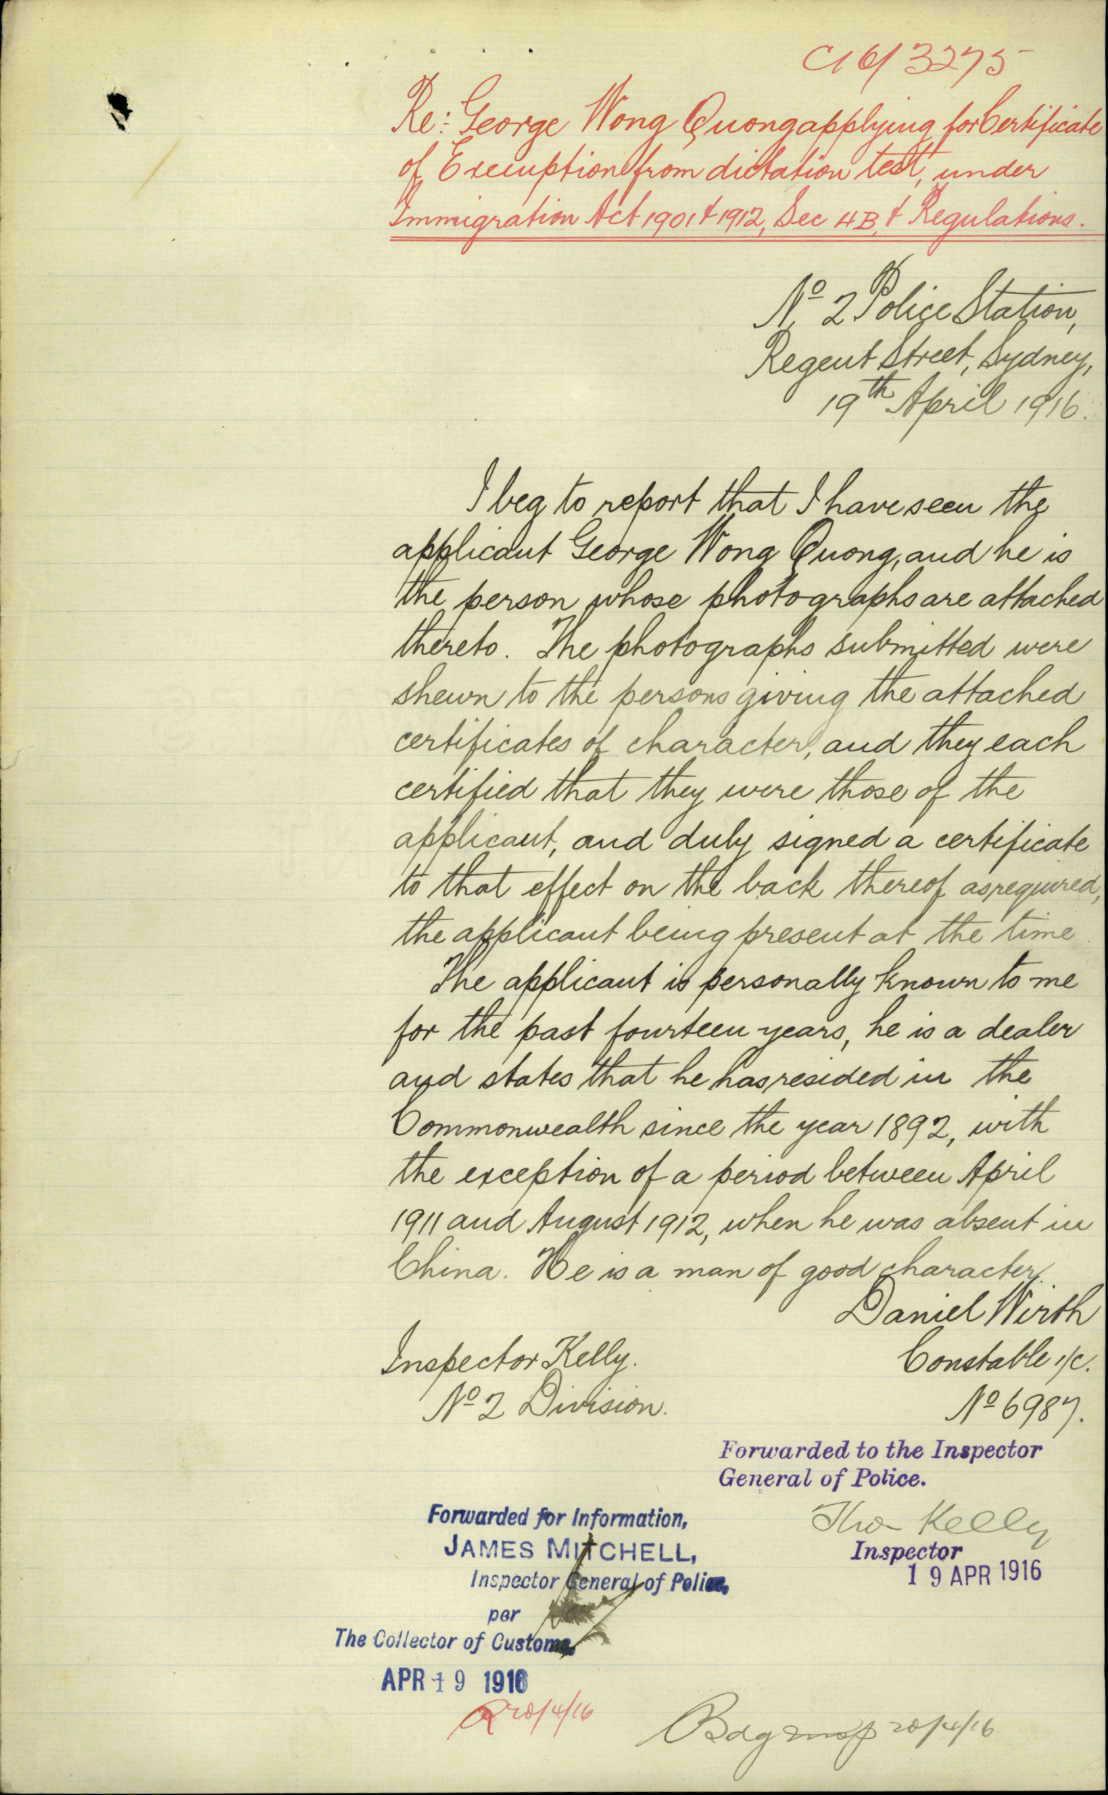 C16/3275
Re: George Wong Quong applying for Certificate
of Exemption from dictation test, under
Immigration Act 1901 & 1912, Sec 4B, & Regulations.
No 2 Police Station,
Regent Street, Sydney,
19th April 1916.
I beg to report that I have seen the
applicant George Wong Quong, and he is
the person whose photographs are attached
thereto. The photographs submitted were
shewn to the persons giving the attached
certificates of character, and they each
certified that they were those of the
applicant, and duly signed a certificate
to that effect on the back thereof as required,
the applicant being present at the time
The applicant is personally known to me
for the past fourteen years, he is a dealer
and states that he has resided in the
Commonwealth since the year 1892, with
the exception of a period between April
1911 and August 1912, when he was absent in
China. He is a man of good character.
Daniel Wirth
Inspector Kelly. Constable 1/c.
No 2 Division. No 6987.
Forwarded to the Inspector
General of Police.
Tho Kelly
Inspector
19 APR 1916
Forwarded for Information,
JAMES MITCHELL,
Inspector General of Police,
per
The Collector of Customs.
APR 19 1916
R 20/4/16
20/4/16